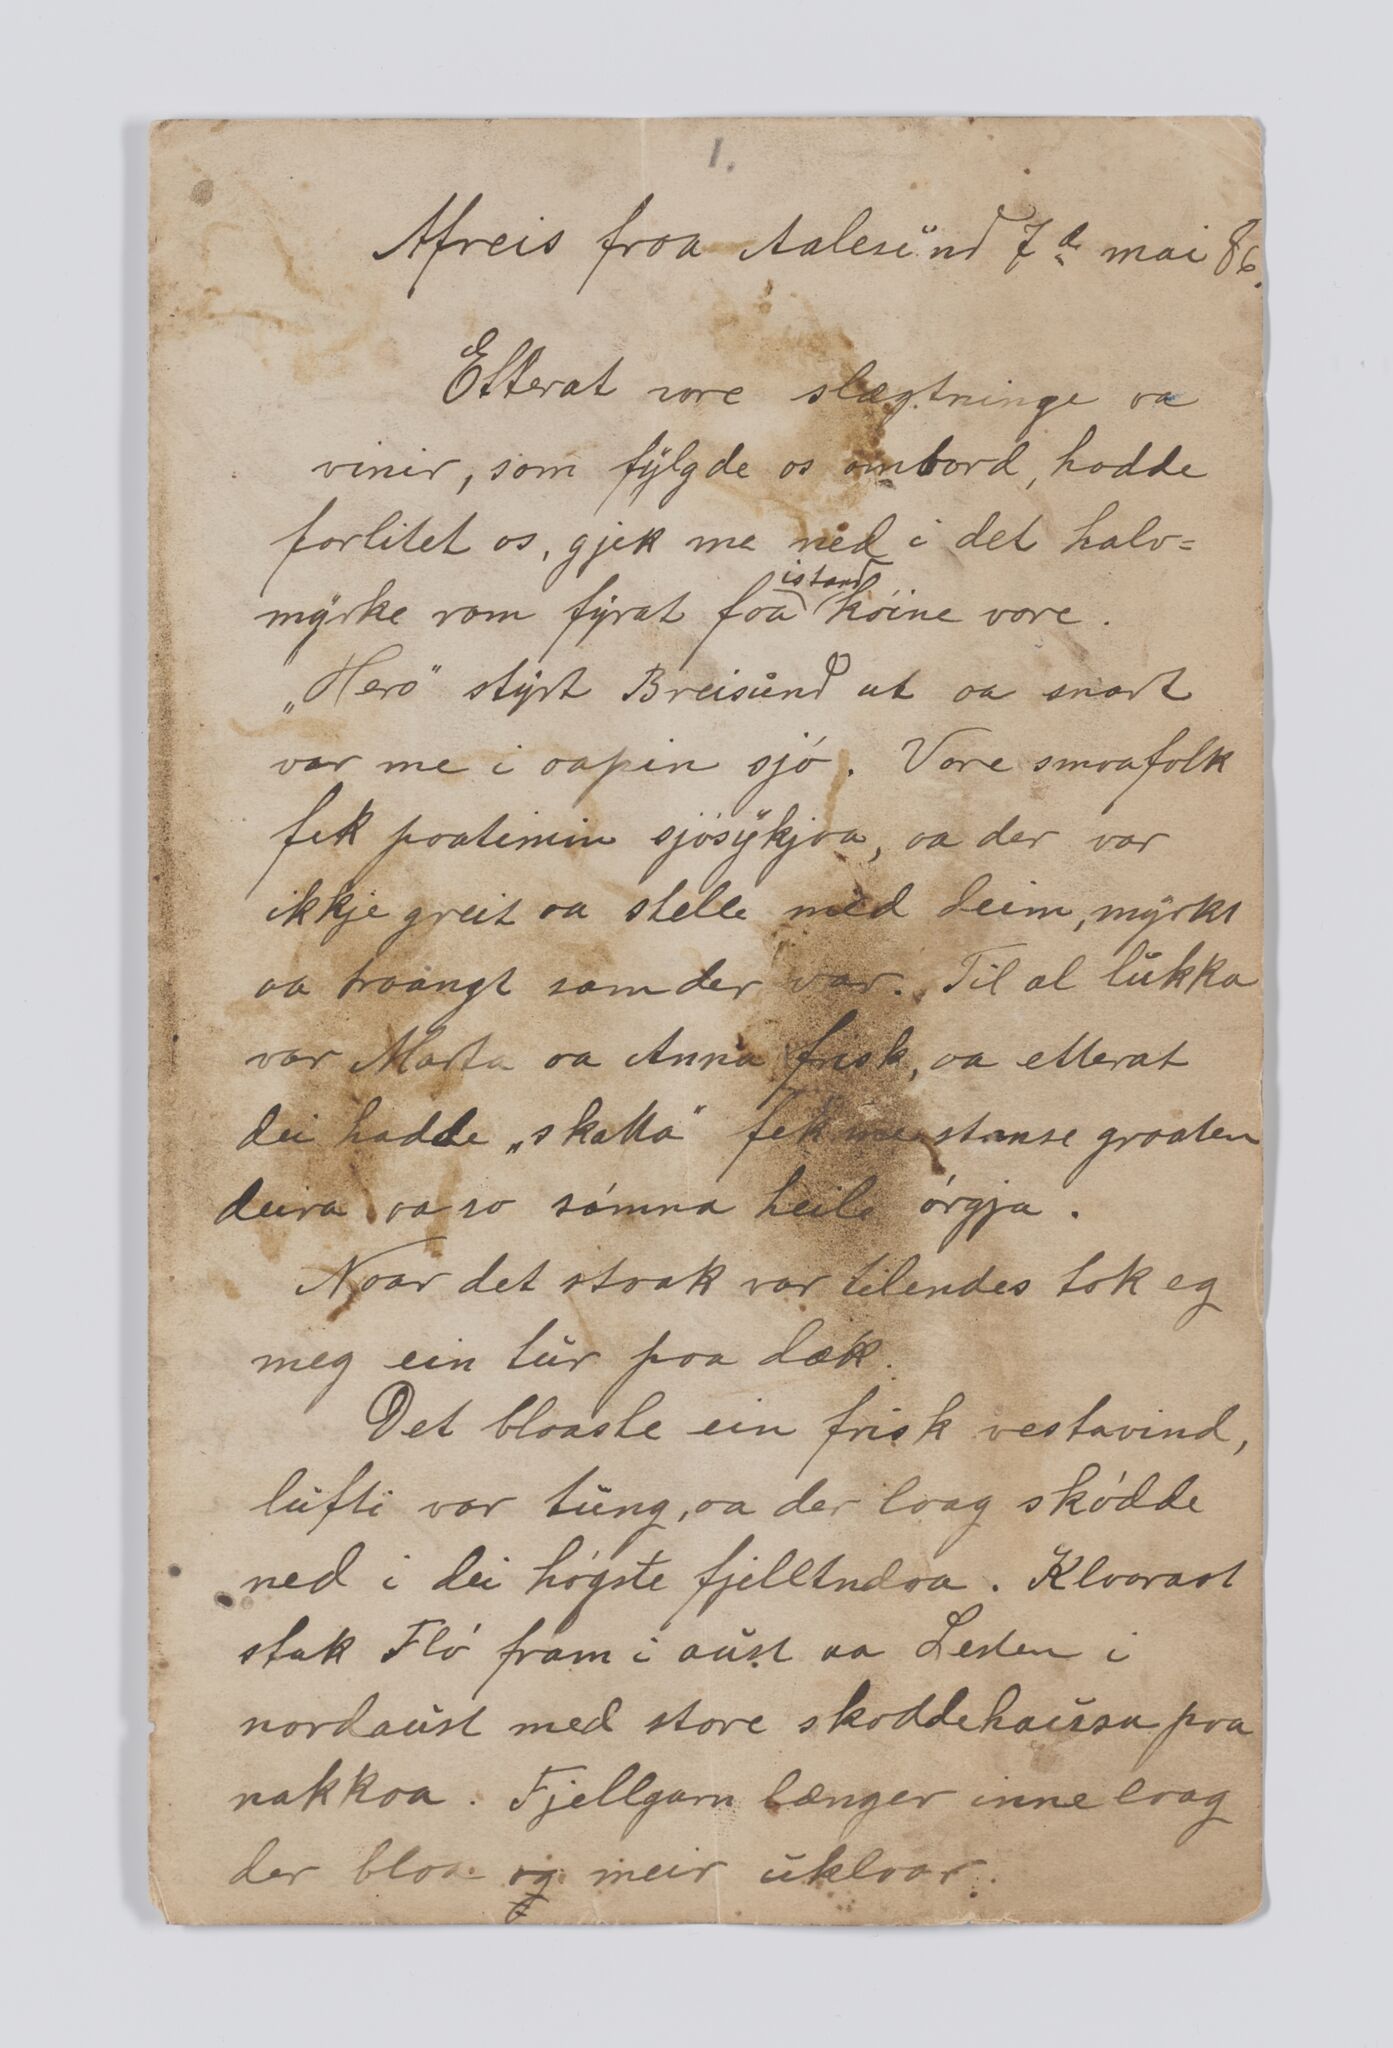 1.
Afreis froa Aalesund 7de mai 86.
Etterat vore slægtninge oa
vinir, som fylgde os ombord, hadde
forlitet os, gjek me ned i det halv=
myrke rom fyrat foa istand kóine vore.
„Hero" styrt Breisund ut oa snart
var me i oapin sjó. Vore smoafolk
fek poatimin sjósykjoa, oa der var
ikkje greit oa stelle med deim, myrkt
oa troangt som der var. Til al lukka
var Marta oa Anna frisk, oa etterat
dei hadde „skatta" fek me stanse groaten
deira oa so sómna heile órgja.
Noar det stroak var tilendes tok eg
meg ein tur poa dæk.
Det bloaste ein frisk vestavind,
lufti var tung, oa der loag skódde
ned i dei hógste fjelltndoa. Kloarast
stak Fló fram i aust oa Lesten i
nordaust med store skoddehausa poa
nakkoa. Fjellgarn længer inne loag
der bloa og meir ukloar.